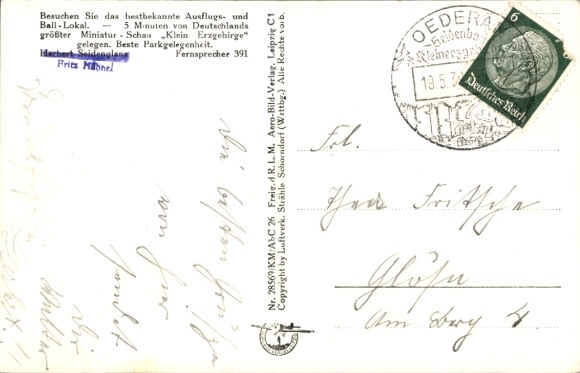 Besuchen Sie das bestbekannte Ausflugs- und
Ball-Lokal. — 5 Minuten von Deutschlands
größter Miniatur-Schau „Klein Erzgebirge"
gelegen. Beste Parkgelegenheit.
Herbert Seidenglanz Fernsprecher 391
Fritz Hähnel
Die besten Grüße
von hier
sendet
Dir
Nr. 28569/KM/AbC 26 Freig. d. R. L. M. Aero-Bild-Verlag, Leipzig C 1
Copyright by Luftverk. Strähle Schorndorf (Wrttbg.) Alle Rechte vorb.
OEDERAN
Kleinerzgeb
19.5.3
6
Deutsches Reich
Frl.
Fritsche
Glösa
Am Berg 4